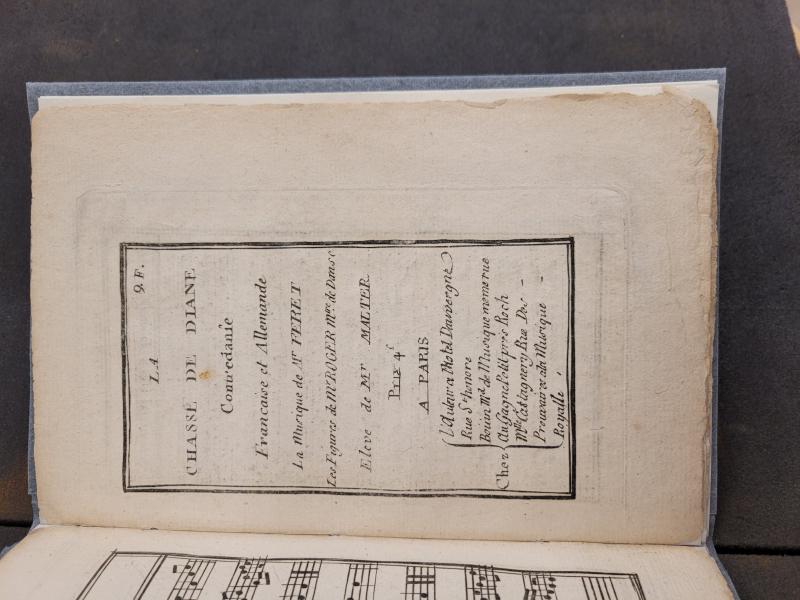 9. F.
LA
CHASSE DE DIANE
Contredanse
Francaise et Allemande
La Musique de Mr. PERET
Les Figures de Mr. ROGER Mtre. de Danse
Eleve de Mr. MALTER
Prix 4s
A PARIS
Chez
l'Auteur a l'hotel Dauvergne
Rue St. honore
Bouin Md. de Musique meme rue
Au Gagne Petit pres St. Roch
Melle Castagnery Rue Des -
Prouvaires a la Musique -
Royalle